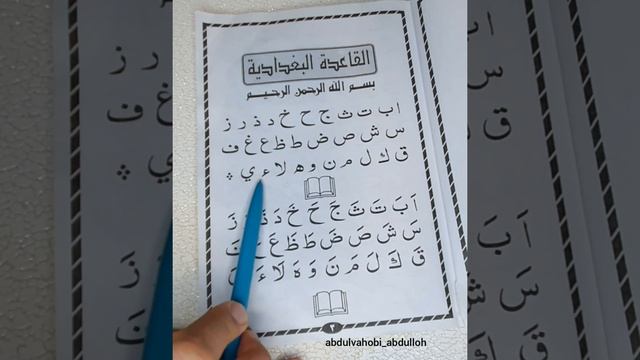 القاعدة البغدادية
بسم الله الرحمن الرحيم
ا ب ت ث ج ح خ د ذ ر ز
س ش ص ض ط ظ ع غ ف
ق ك ل م ن و ه لا ء ي
اَ بَ تَ ثَ جَ حَ خَ دَ ذَ رَ زَ
سَ شَ صَ ضَ طَ ظَ عَ غَ فَ
قَ كَ لَ مَ نَ وَ هَ لَا ءَ
٣
abdulvahobi_abdulloh